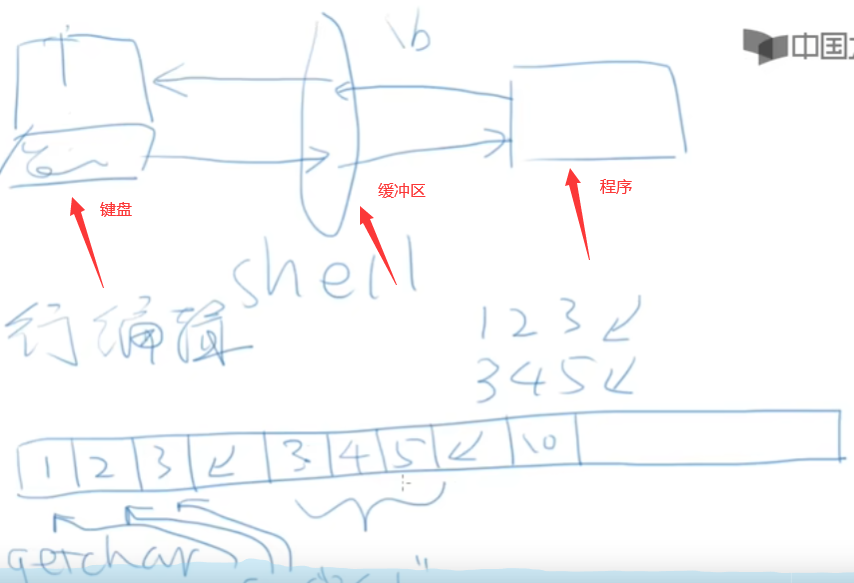 \b
中国
键盘
缓冲区
程序
shell
行编辑
123↙
345↙
1 2 3 ↙ 3 4 5 ↙ \0
getchar